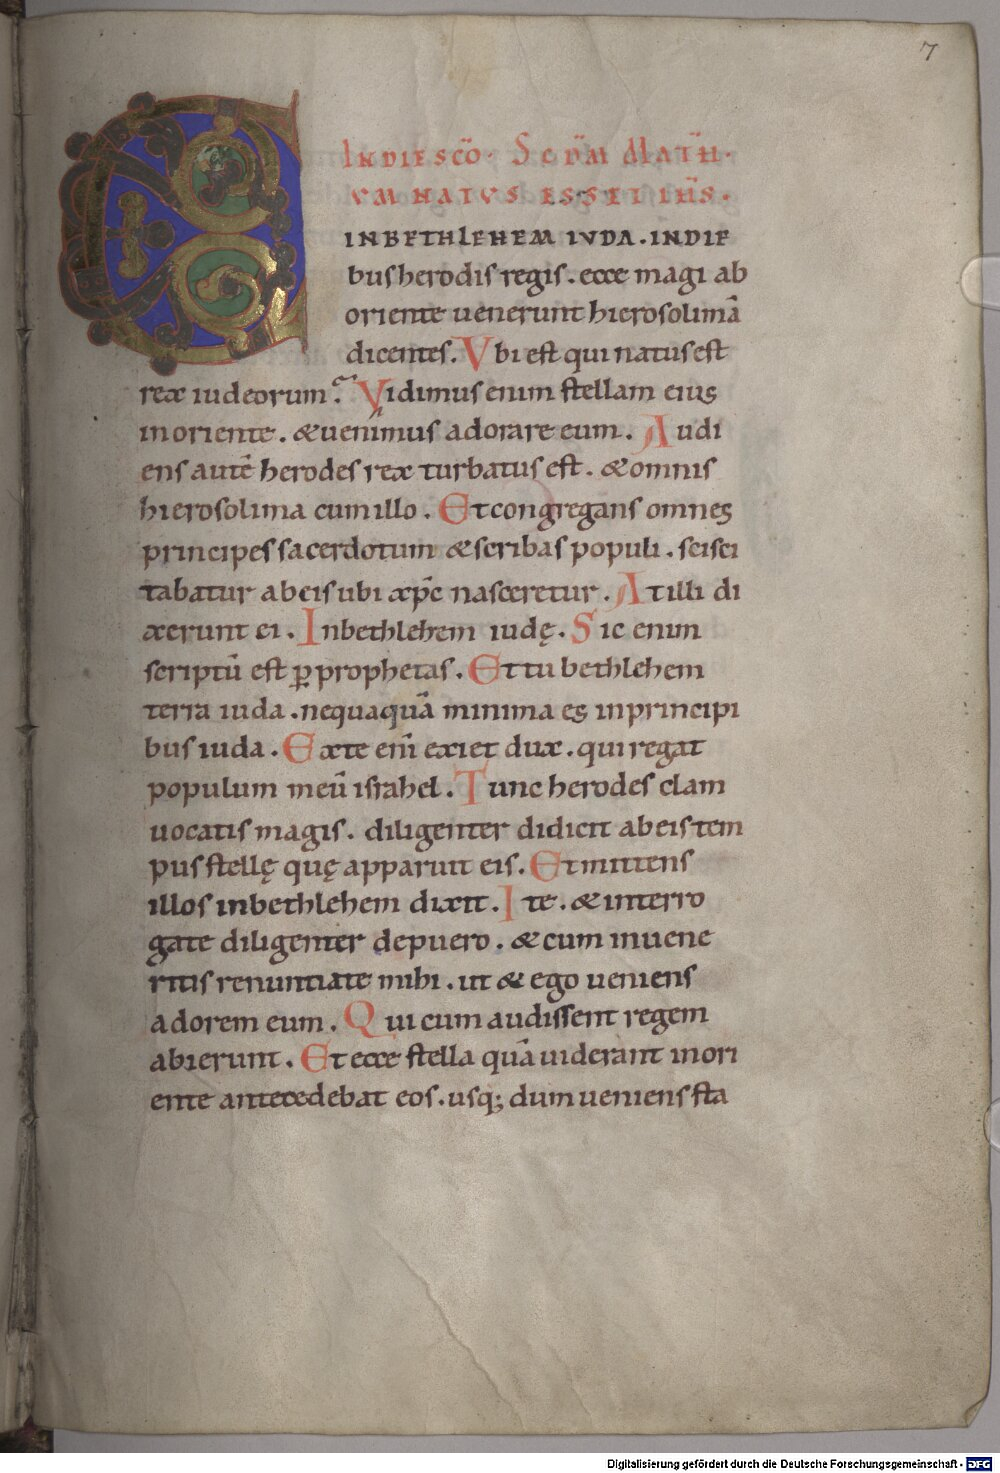 7
IN DIE SCŌ. SCDM MATH.
CUM NATUS ESSET IHS.
IN BETHLEHEM IUDA. IN DIE
bus herodis regis. ecce magi ab
oriente uenerunt hierosolimā
dicentes. Vbi est qui natus est
rex iudeorum? Vidimus enim stellam eius
in oriente. & uenimus adorare eum. Audi
ens autē herodes rex turbatus est. & omnis
hierosolima cum illo. Et congregans omnes
principes sacerdotum & scribas populi. scisci
tabatur ab eis ubi xp̄c nasceretur. At illi di
xerunt ei. In bethlehem iudę. Sic enim
scriptū est ꝑ prophetas. Et tu bethlehem
terra iuda. nequaquā minima es in principi
bus iuda. Ex te enī exiet dux. qui regat
populum meū israhel. Tunc herodes clam
uocatis magis. diligenter didicit ab eis tem
pus stellę quę apparuit eis. Et mittens
illos in bethlehem dixit. Ite. & interro
gate diligenter de puero. & cum inuene
ritis renuntiate mihi. ut & ego ueniens
adorem eum. Qui cum audissent regem
abierunt. Et ecce stella quā uiderant in ori
ente antecedebat eos. usq; dum ueniens sta
Digitalisierung gefördert durch die Deutsche Forschungsgemeinschaft - DFG